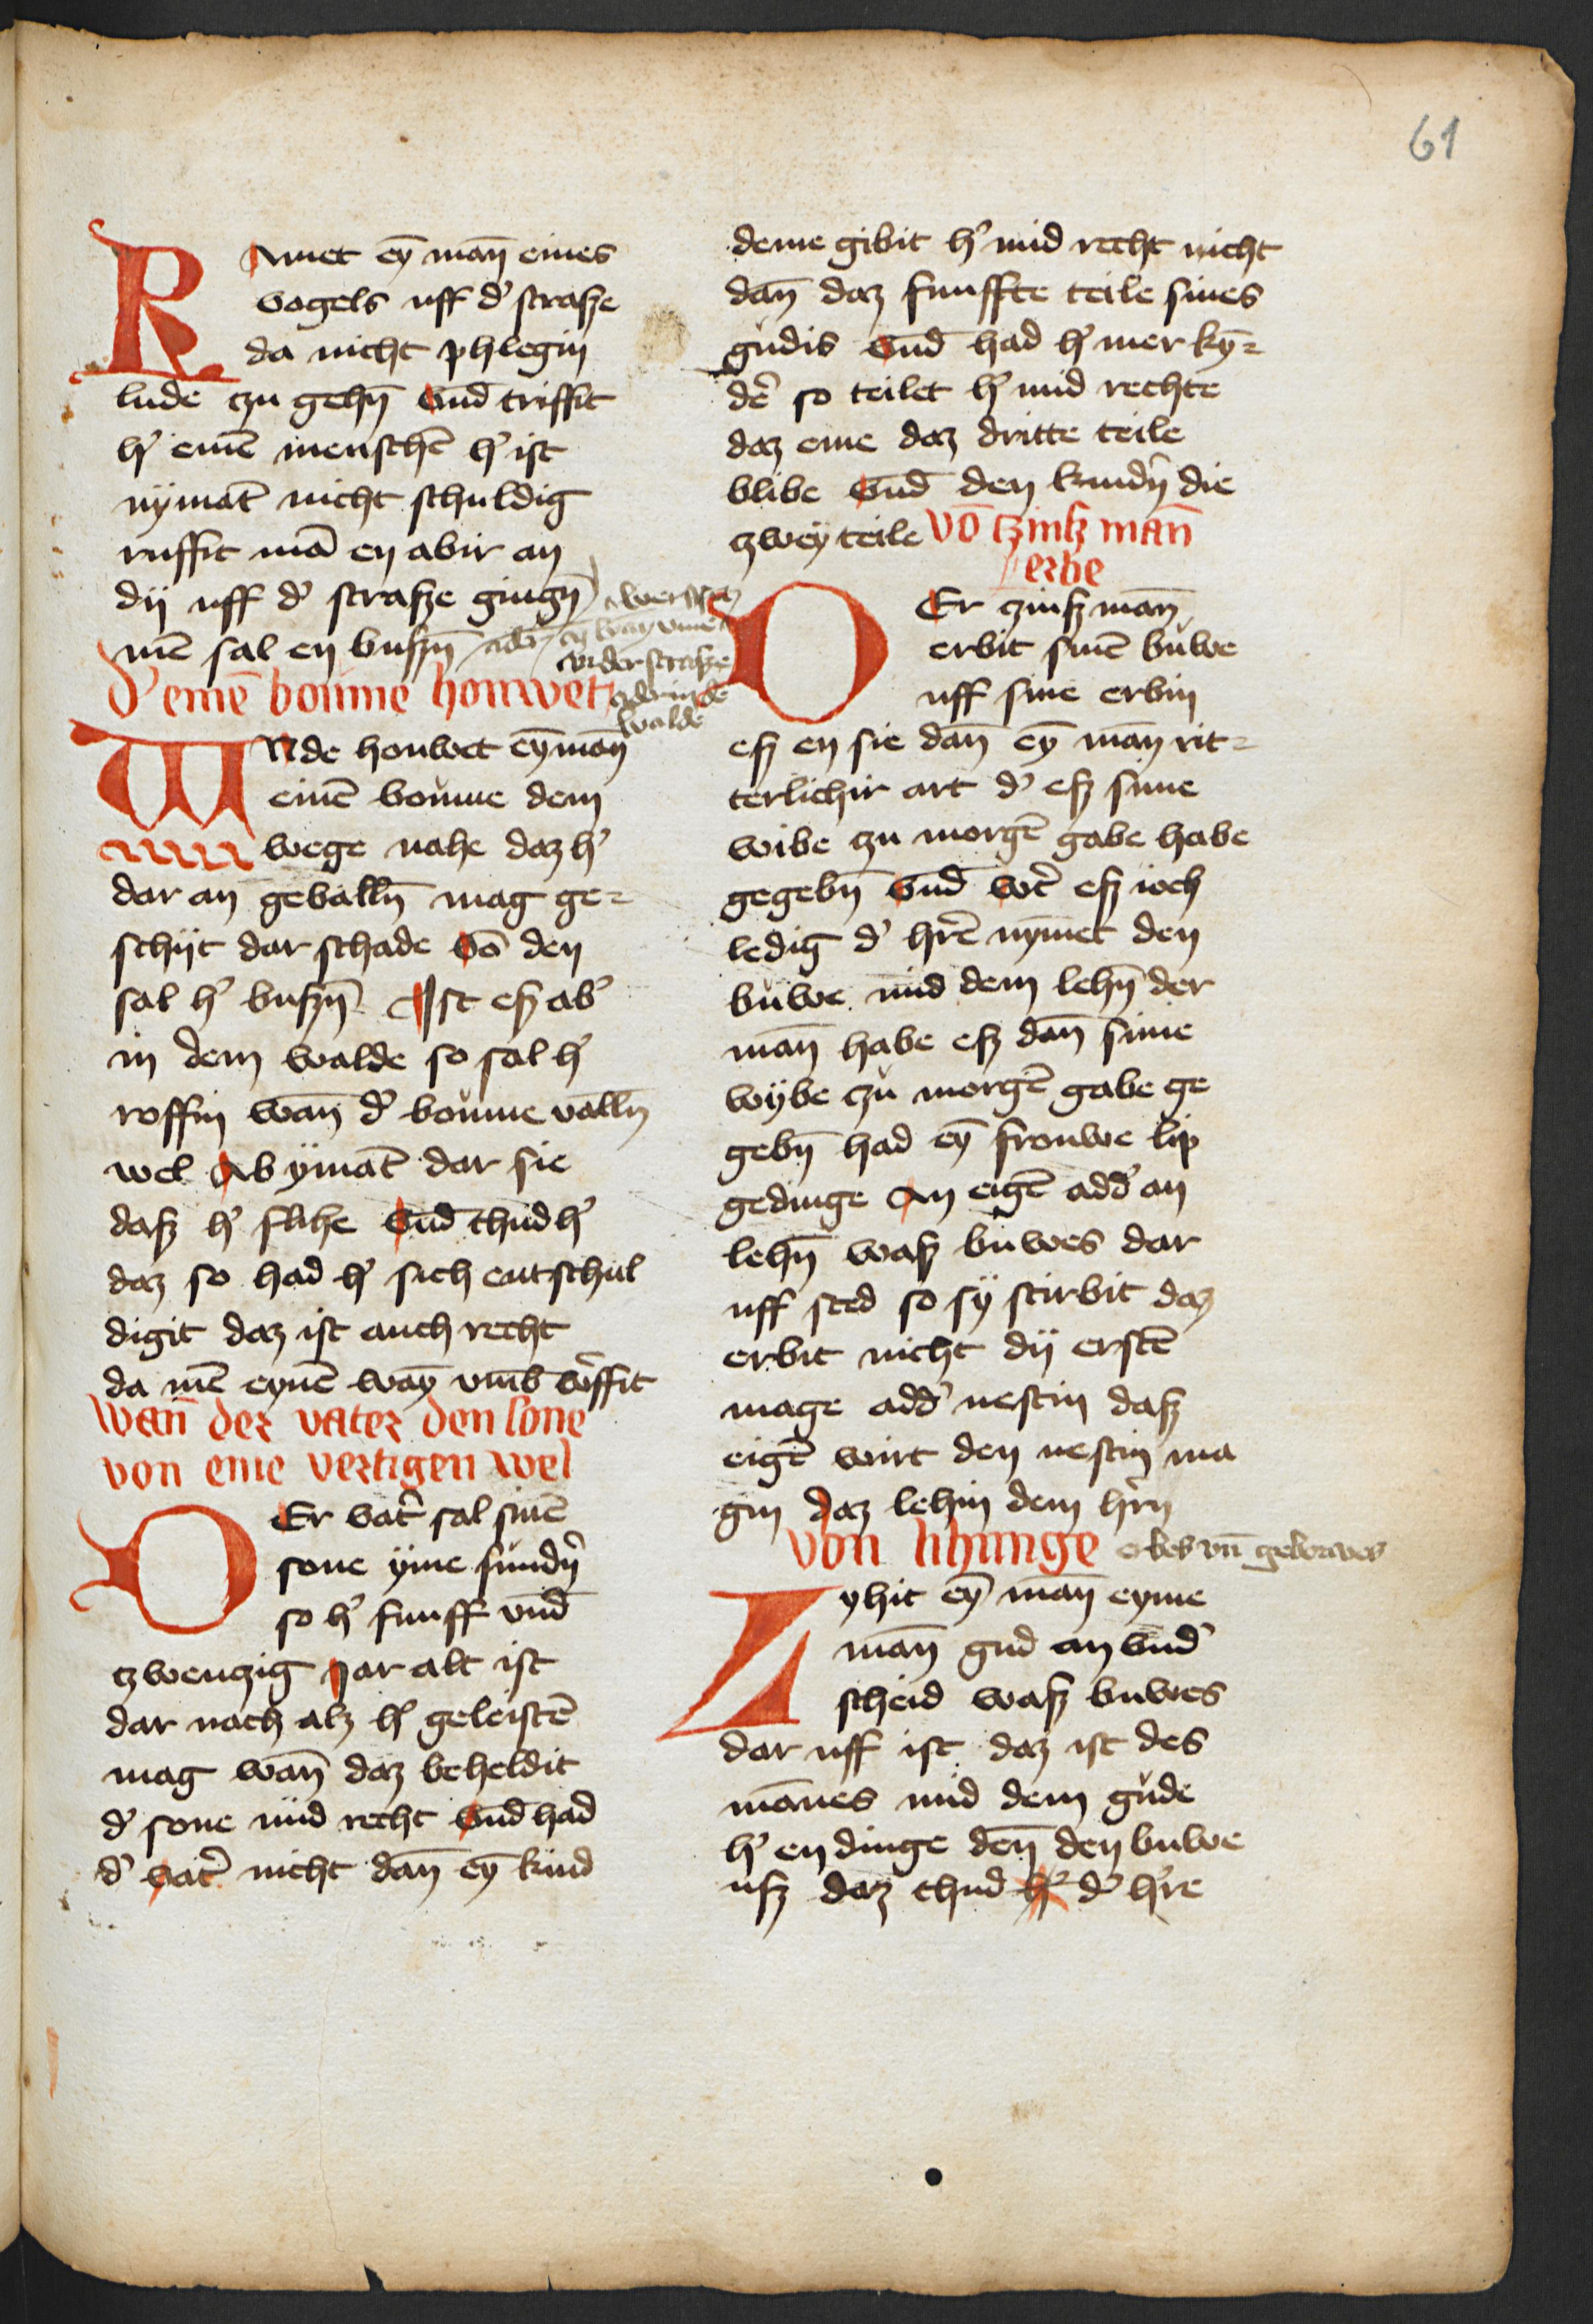 61
RAmet ey̅ man̅ eines
vogels uff d' strasze
da nicht phlegin
lude czu gehn̅ vnd̅ triffit
h' eine̅ mensche̅ h' ist
nymat̅ nicht schuldig
ruffit ma̅ en abir an
dij uff d' strasze gingn̅
me̅ sal en buszn̅ ader
vnder strasze
ader in de
walde
D' eine̅ boume houwet
UNde houwet ey̅ man̅
eine̅ boume dem
wege nahe daz h'
dar an gevalln̅ mag ge=
schijt dar schade vo̅ den
sal h' buszn̅ Ist esz ab'
in dem walde so sal h'
roffin wan̅ d' boume valln̅
wel Ab ymat̅ dar sie
dasz h' flihe vnd̅ thud h'
daz so had h' sich entschul
digit daz ist auch recht
da me̅ eyne̅ way̅ vmb w'ffit
wan̅ der vater den sone
von eme vertigen wel
DEr vat' sal sine̅
sone yme sundn̅
so h' funff vnd̅
czwenczig Jar alt ist
dar nach alz h' geleiste̅
mag wan̅ daz beheldit
d' sone mid recht vnd̅ had
d' vat' nicht dan̅ ey̅ kind
deme gibit h' mid recht nicht
dan̅ daz funffte teile sines
gudis vnd̅ had h' mer ky̅=
de̅ so teilet h' mid rechte
daz eme daz dritte teile
blibe vnd̅ den kindn̅ die
czwey teile
vo̅ tzinsz man̅
erbe
DEr czinsz man̅
erbit sine̅ buwe
uff sine erbin
esz en sie dan̅ ey̅ man̅ rit=
terlichir art d' esz sime
wibe czu morge̅ gabe habe
gegebn̅ vnd̅ w't esz ioch
ledig d' h're̅ nymet den
buwe mid dem lehn̅ der
man̅ habe esz dan̅ sime
wybe czu morge̅ gabe ge
gebn̅ had ey̅ frouwe lip
gedinge An eige̅ add' an
lehn̅ wasz buwes dar
uff sted so sy stirbit daz
erbit nicht dij erste̅
mage add' nestin dasz
eige̅ wirt den nestin ma
gin daz lehin dem h'rn
von lihunge erbes vn̅ gebuwes
Lyhit ey̅ man̅ eyme
man̅ gud an vnd'
scheid wasz buwes
dar uff ist daz ist des
ma̅nes mid dem gude
h' en dinge den̅ den buwe
usz daz thud h' d' h're